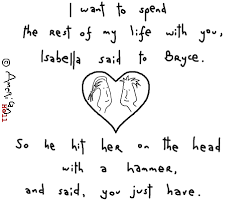 I want to spend
the rest of my life with you,
Isabella said to Bryce.
So he hit her on the head
with a hammer,
and said, you just have.